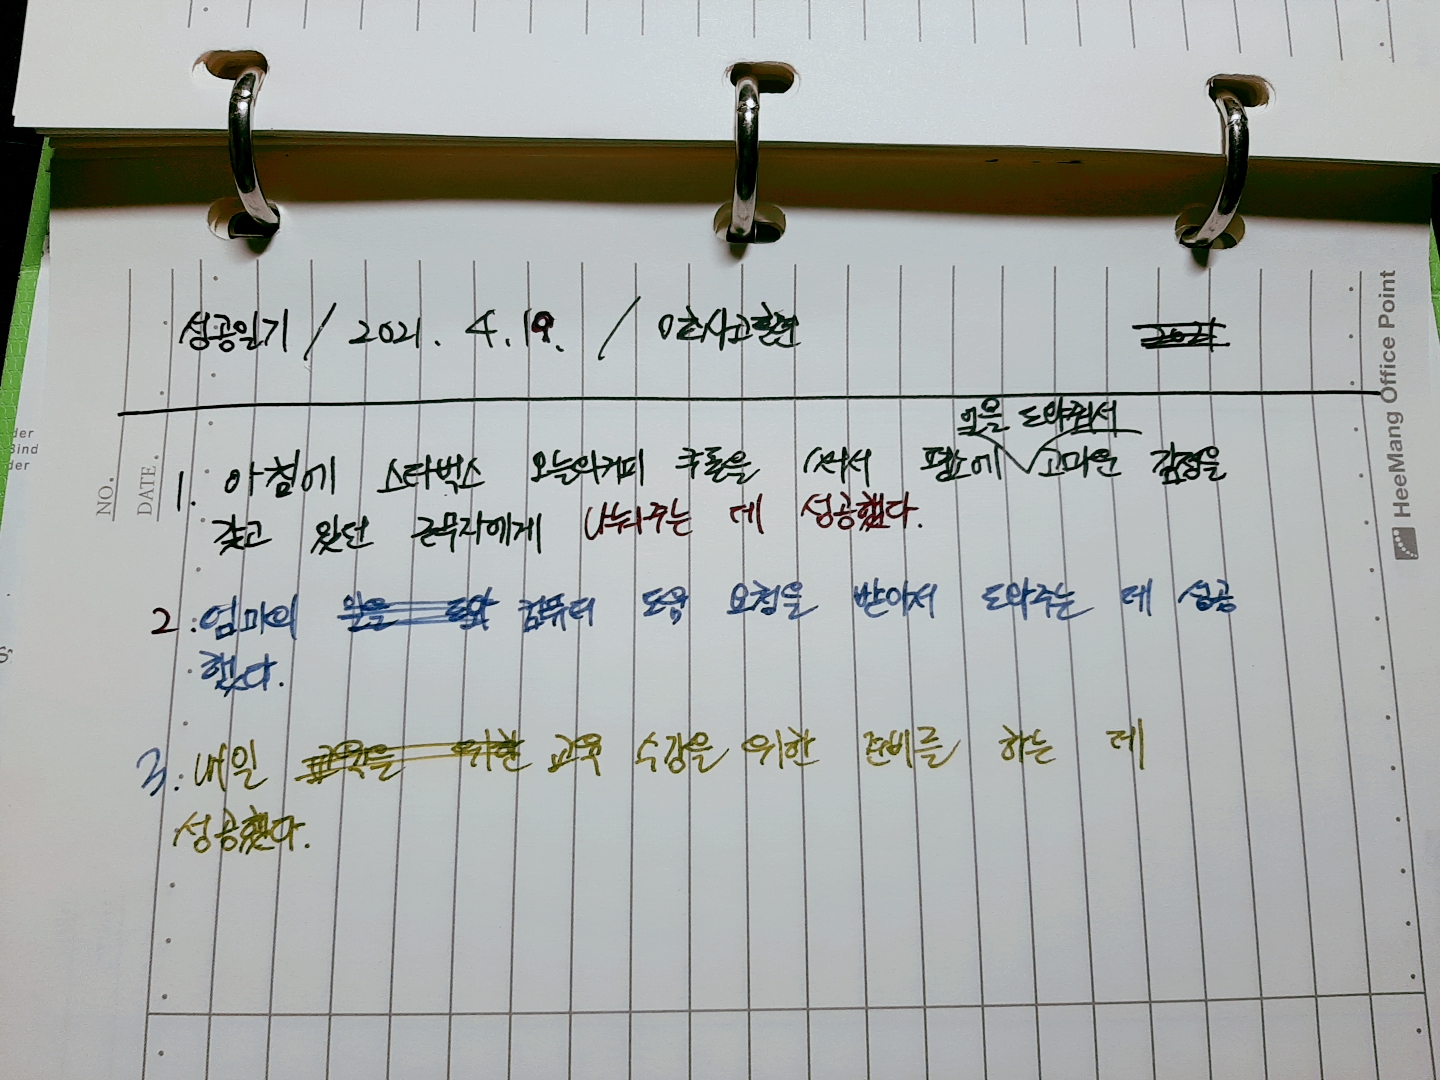 성공일기 / 2021. 4. 19. / 미래사고훈련
일을 도와줘서
1. 아침에 스타벅스 오늘의커피 쿠폰을 써서 평소에 고마운 감정을
갖고 있던 근무자에게 나눠주는 데 성공했다.
2. 엄마의 컴퓨터 도움 요청을 받아서 도와주는 데 성공
했다.
3. 내일 교육 수강을 위한 준비를 하는 데
성공했다.
NO.
DATE.
HeeMang Office Point